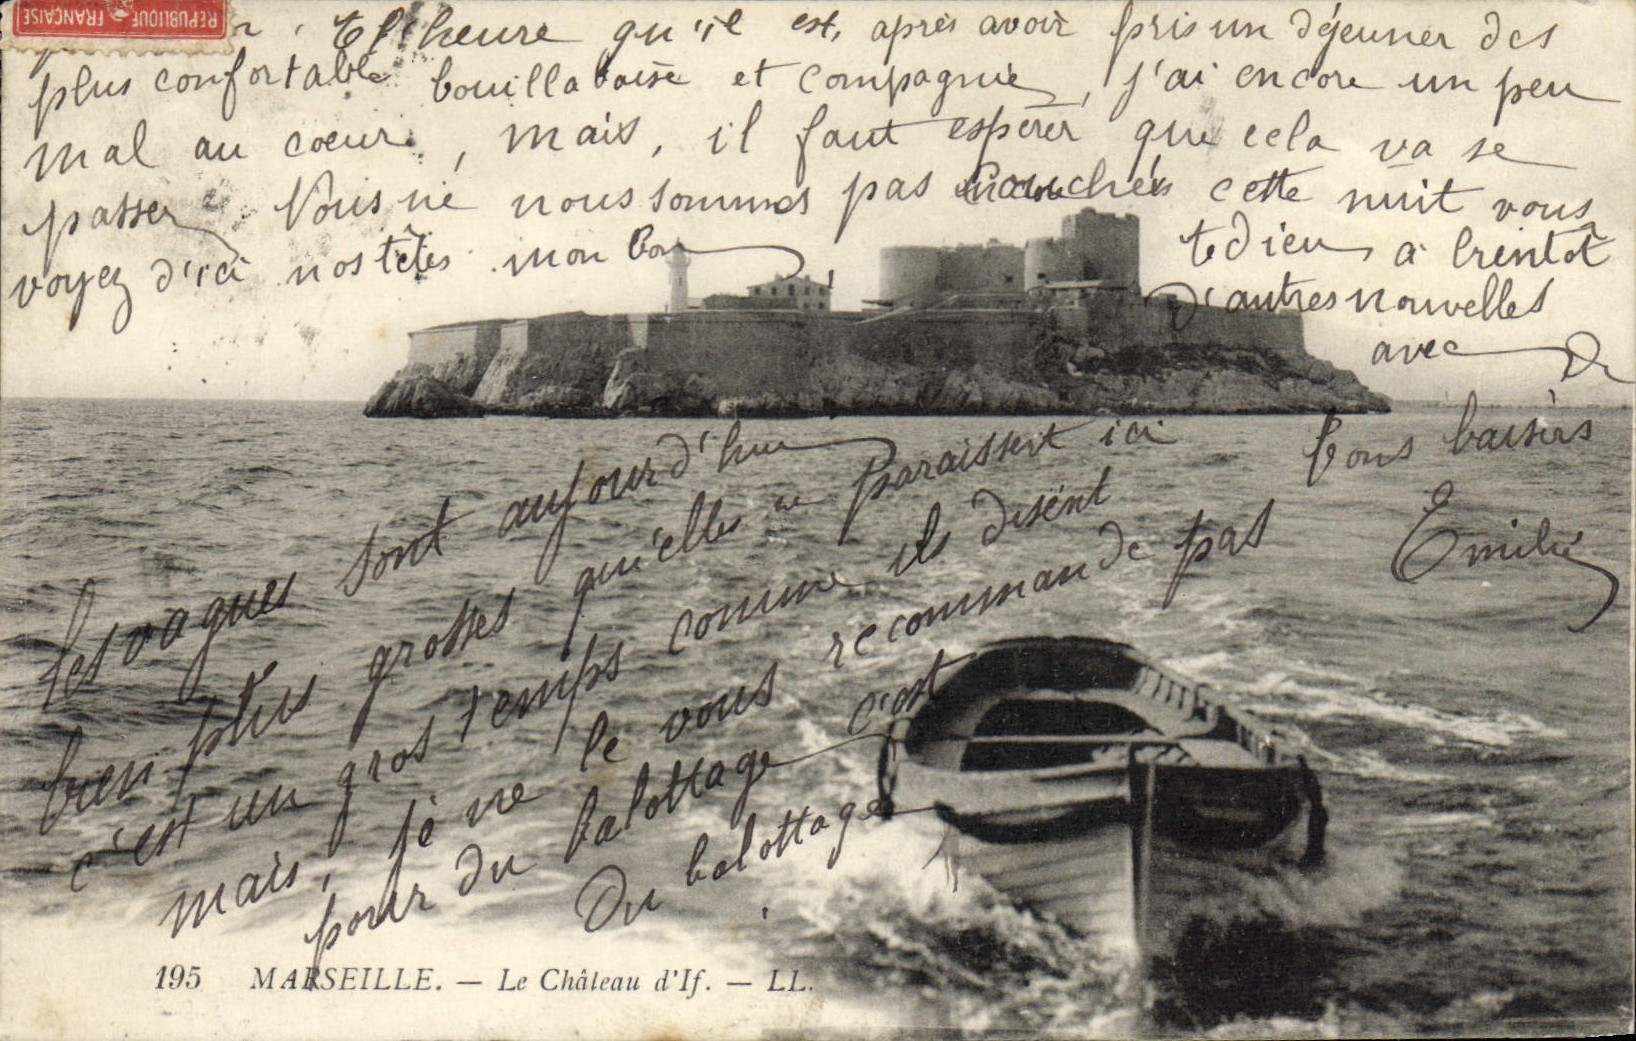 REPUBLIQUE FRANÇAISE
l'heure qu'il est, après avoir pris un déjeuner des
plus confortable bouillabaise et compagnie, j'ai encore un peu
mal au coeur, mais, il faut espérer que cela va se
passer. Nous ne nous sommes pas couchés cette nuit vous
voyez d'ici nos têtes. mon bon
te dieu, à bientôt
d'autres nouvelles
avec De
bons baisers
Emilie
Les vagues sont aujourd'hui
bien plus grosses qu'elles ne paraissent ici
c'est un gros temps comme ils disent
mais, je ne le vous recommande pas
pour du balottage c'est
Du balottage.
195 MARSEILLE. — Le Château d'If. — LL.